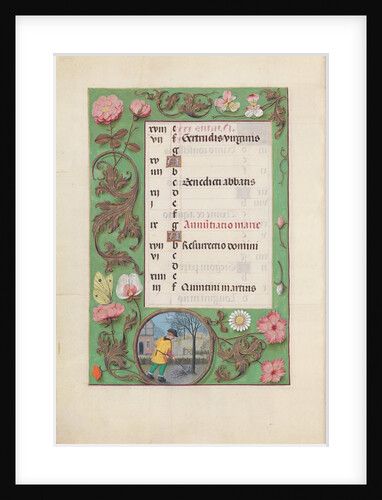 xviii e
vii f Gertrudis virginis
g
xv A
iiii b
c Benedicti abbatis
xii d
i e
f
g Annūtiatio marie
A
xvii b Resurrectio domini
vi c
d
xiiii e
iii f Quintini martiris